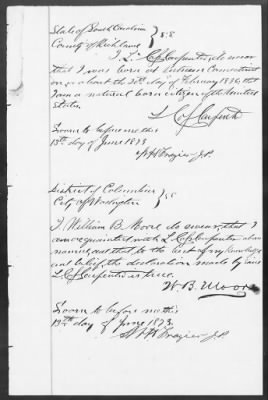 State of South Carolina } SS
County of Richland
I L. Cass Carpenter do swear
that I was born at Putnam Connecticut
on or about the 20th day of February 1836, that
I am a natural born citizen of the United
States.
L. Cass Carpenter
Sworn to before me this
13th day of June 1873
W. H. Frazier J.P.
District of Columbia } SS
City of Washington
I William B. Moore do swear, that I
am acquainted with L Cass Carpenter above
named, and that to the best of my knowledge
and belief, the declaration made by said
L. Cass Carpenter is true.
W. B. Moore
Sworn to before me this
13th day of June 1873.
W. H. Frazier J.P.